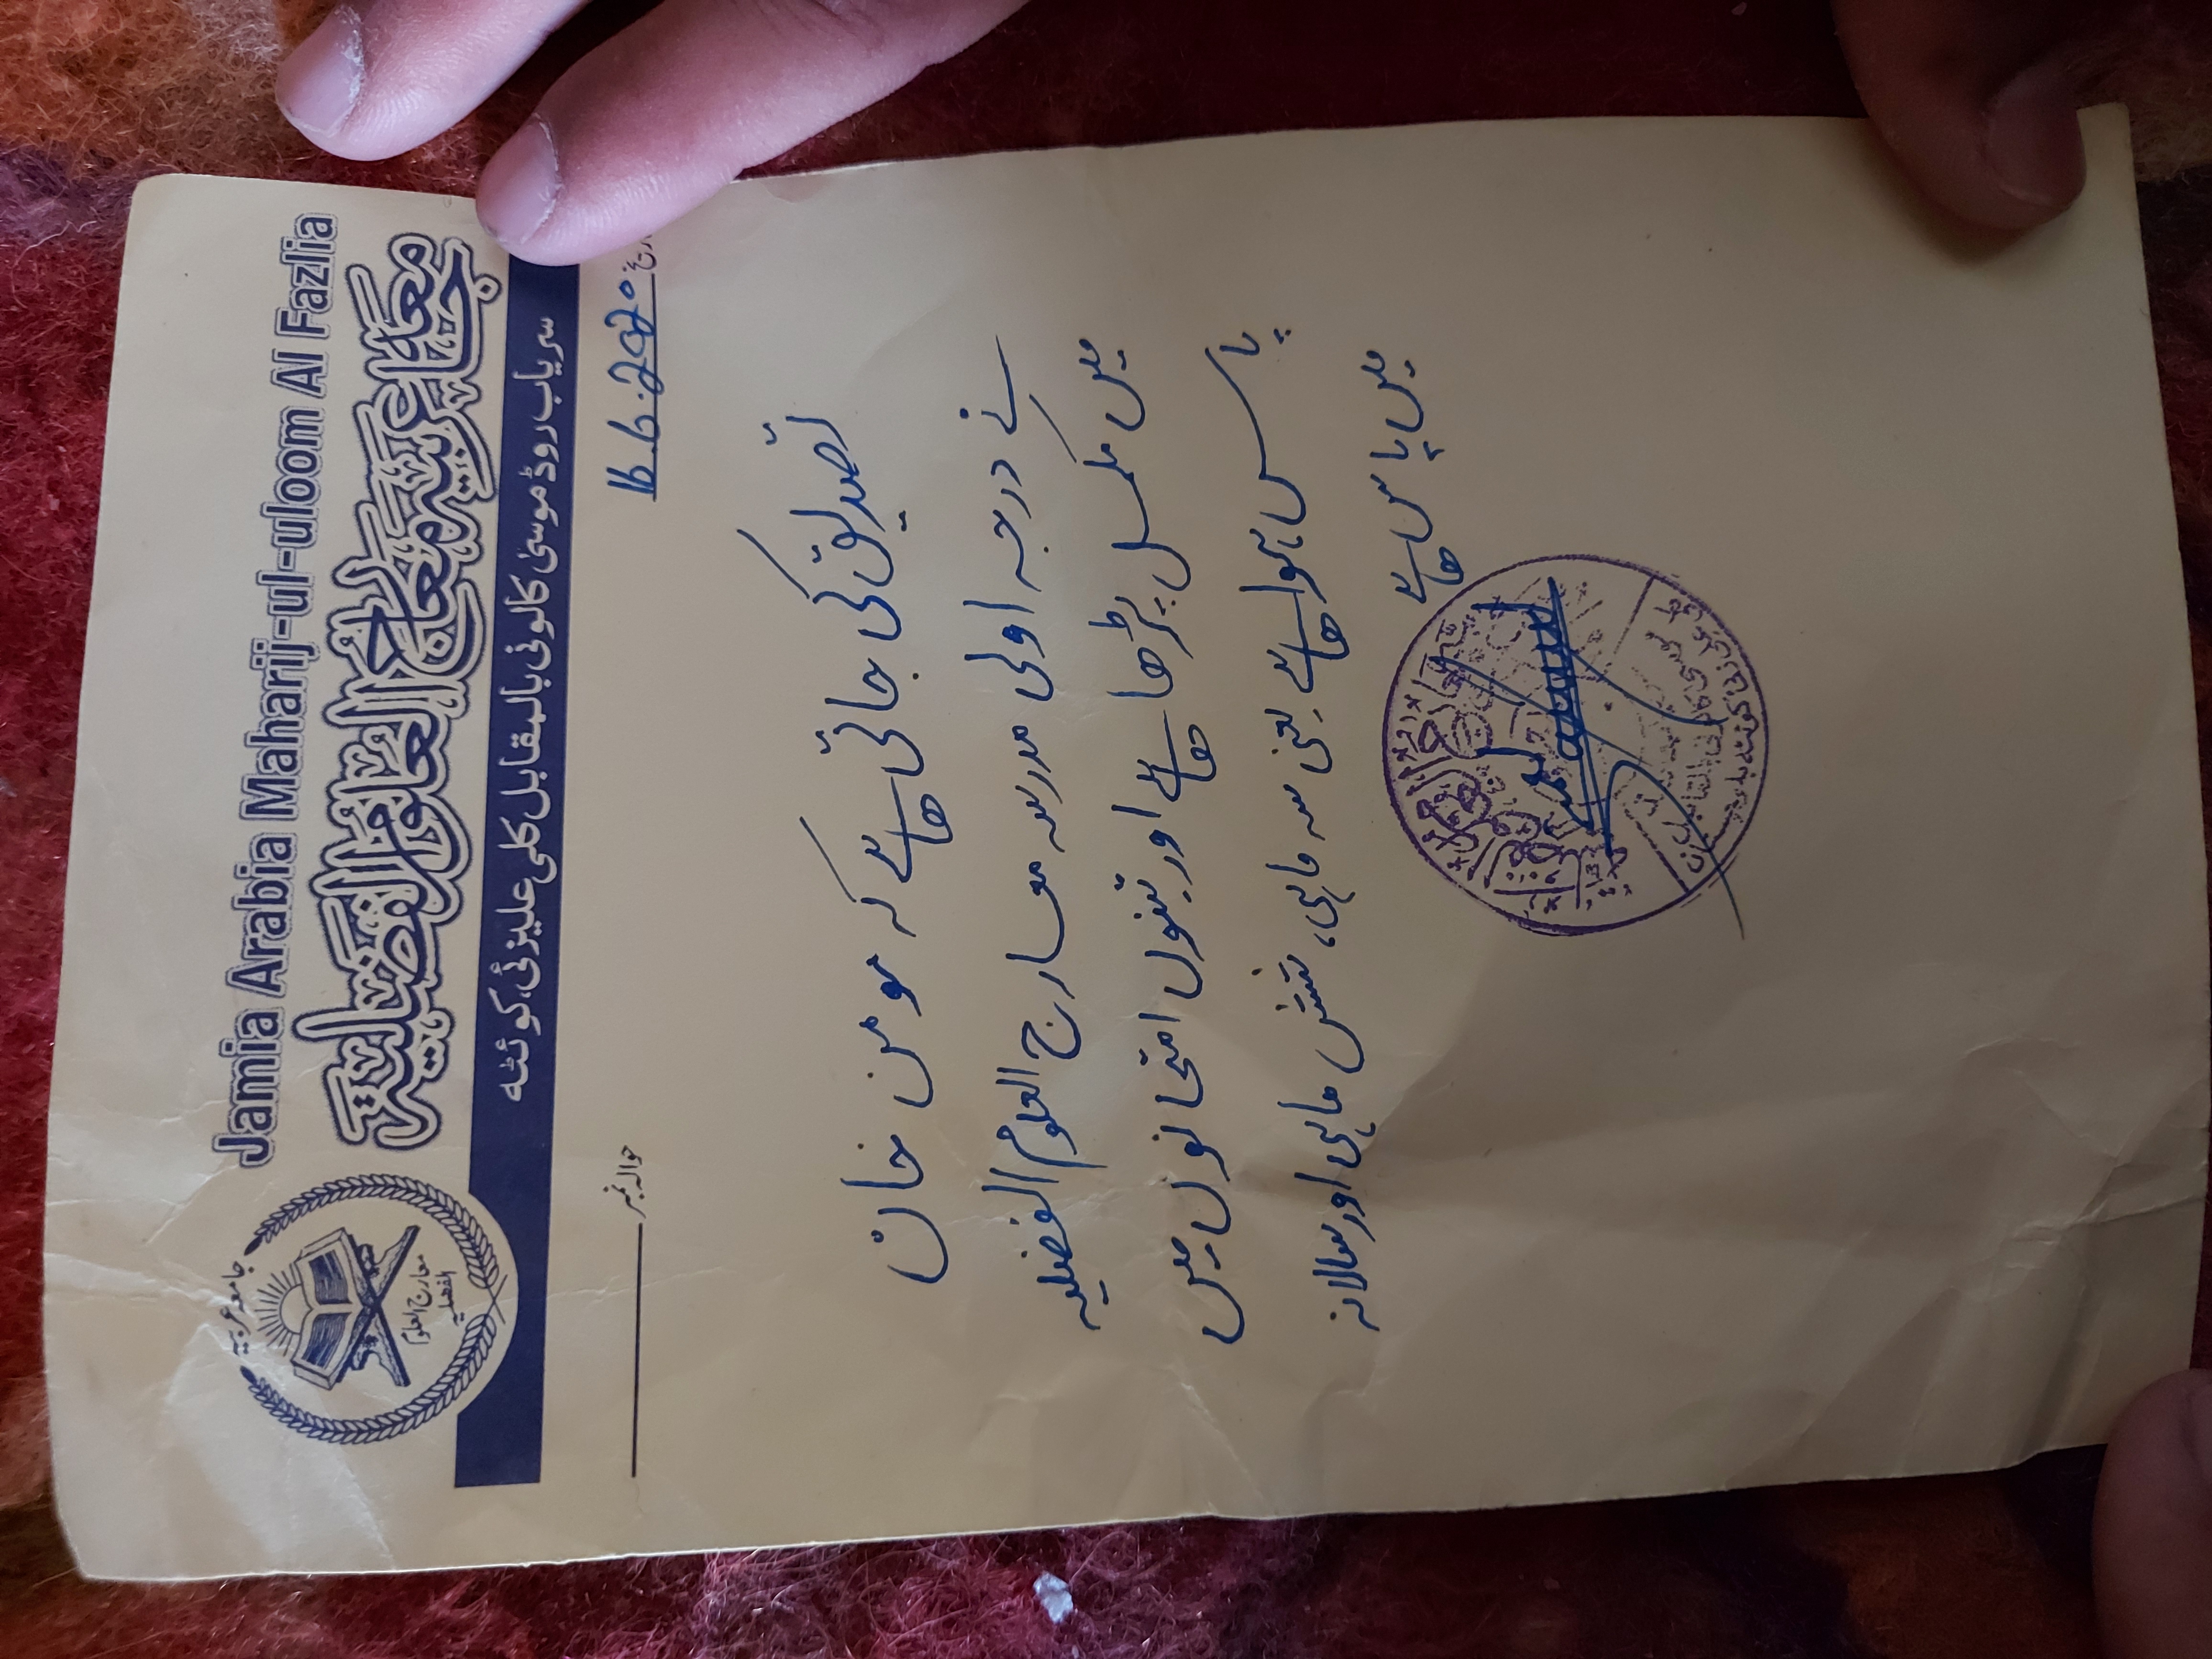 Jamia Arabia Maharij-ul-uloom Al Fazlia
جامعہ عربیہ معارج العلوم الفضلیہ
جامعہ عربیہ
معارج العلوم
الفضلیہ
سریاب روڈ موسیٰ کالونی بالمقابل کلی علیزئی، کوئٹہ
16.6.2020 حوالہ نمبر
تصدیق کی جاتی ھے کہ مومن خان
نے درجہ اولی مدرسہ معارج العلوم الفضلیہ
میں مکمل پڑھا ھے اور تینوں امتحانوں میں
پاس ہوا ھے یعنی سہ ماہی، شش ماہی اور سالانہ
میں پاس ھے